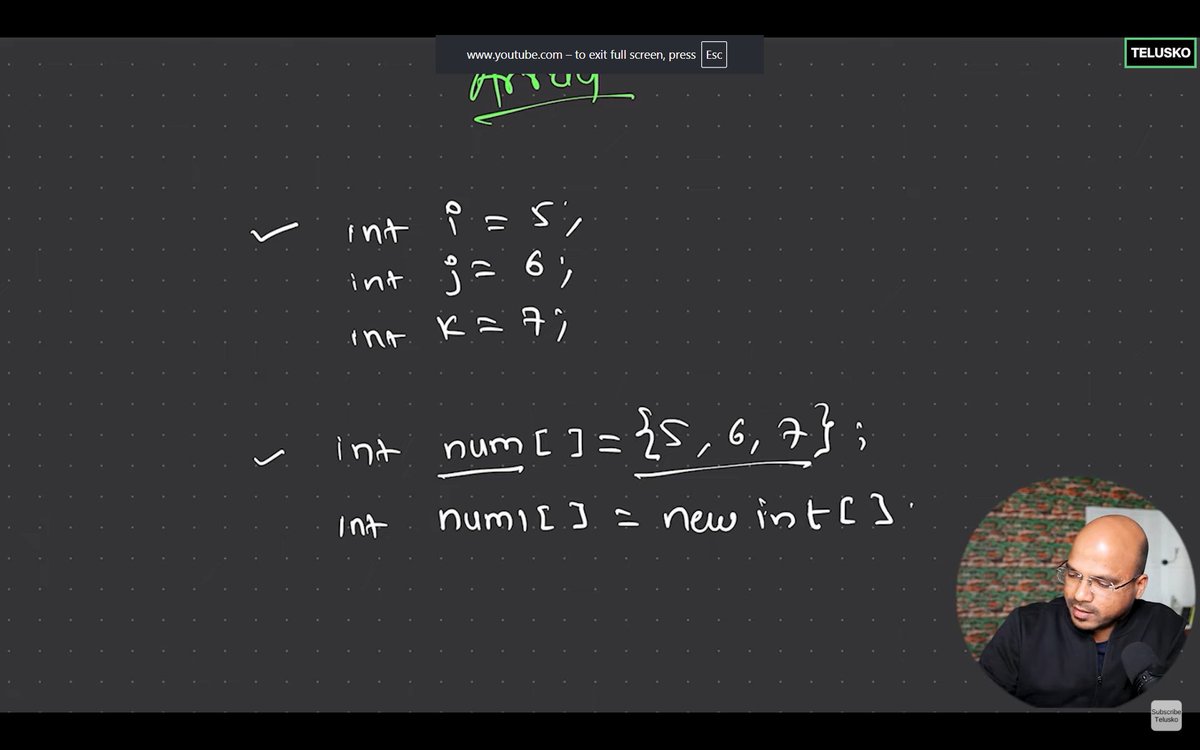 www.youtube.com – to exit full screen, press Esc
TELUSKO
Array
int i = 5;
int j = 6;
int k = 7;
int num[] = {5, 6, 7};
int num1[] = new int[]
Subscribe
Telusko